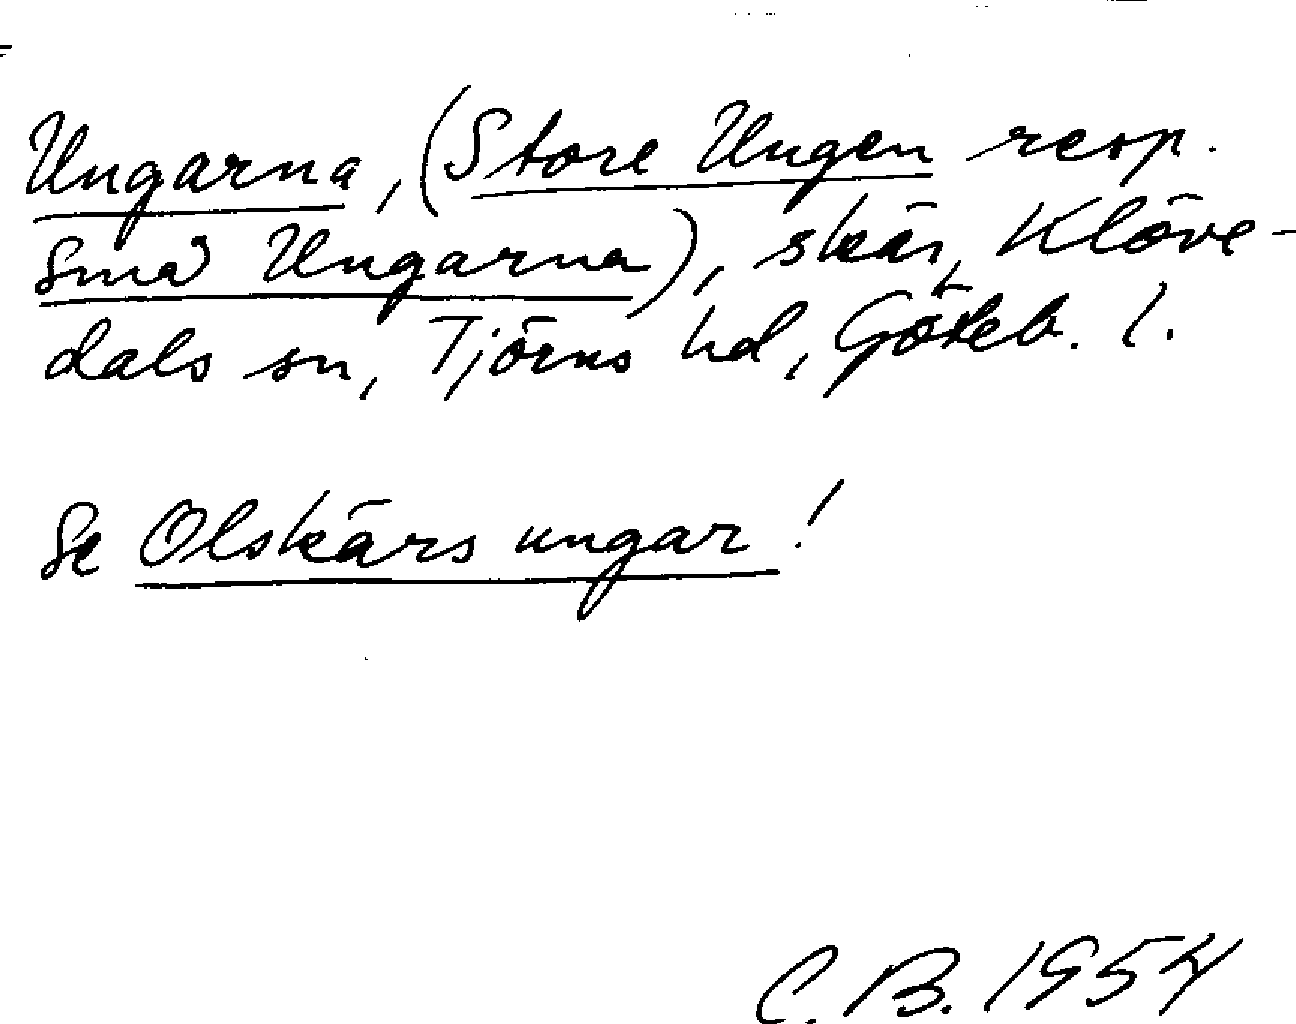 Ungarna, (Store Ungen resp.
Små Ungarna), skär, Klöve-
dals sn, Tjörns hd, Göteb. l.
Se Olskärs ungar!
C. B. 1954